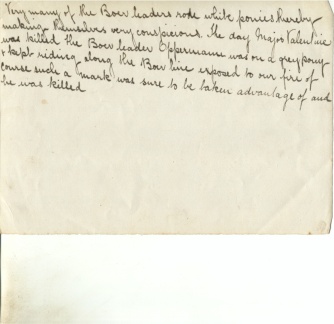 Very many of the Boer leaders rode white ponies thereby
making themselves very conspicuous. The day Major Valentine
was killed the Boer leader Oppermann was on a grey pony
& kept riding along the Boer line exposed to our fire of
course such a mark was sure to be taken advantage of and
he was killed